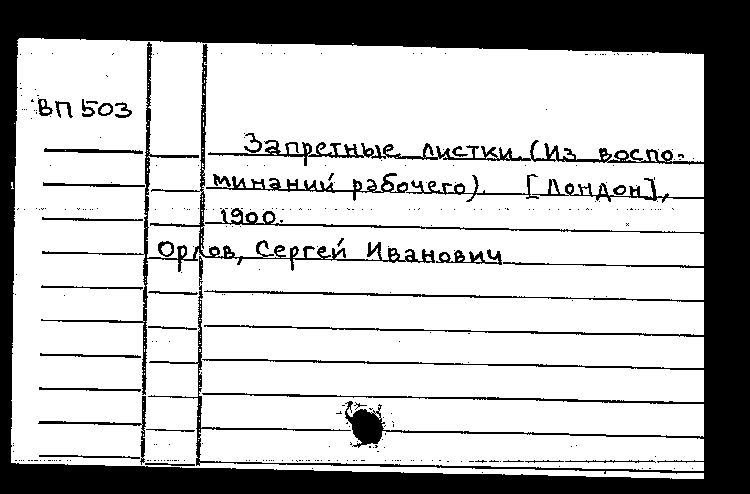 ВП 503
Запретные листки. (Из воспо-
минаний рабочего). [Лондон],
1900.
Орлов, Сергей Иванович